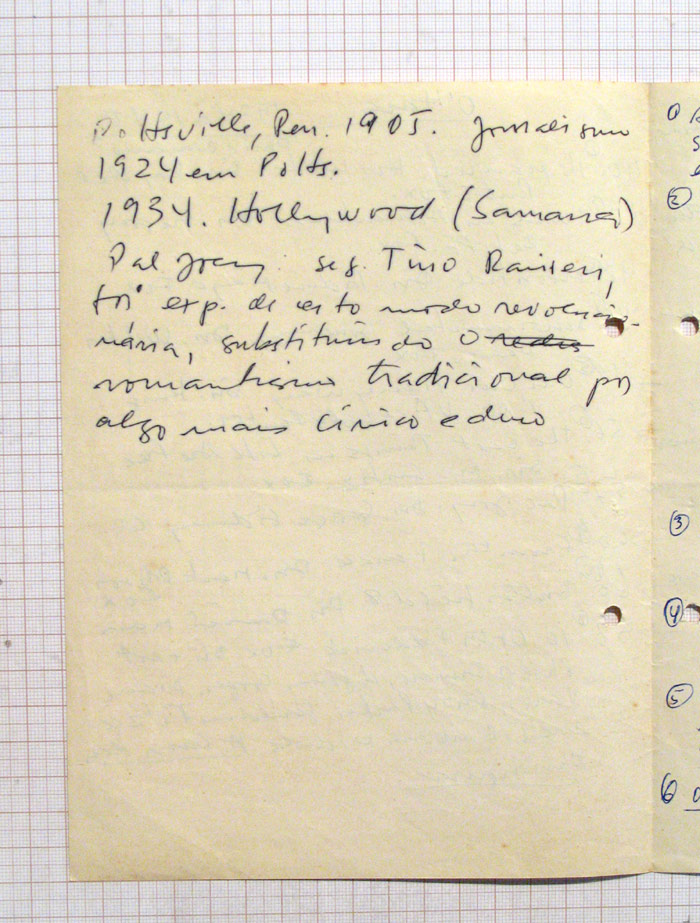 Pottsville, Pen. 1905. Jornalismo
1924 em Potts.
1934. Hollywood (Samarra)
Pal Joey: seg. Tino Ranieri,
foi exp. de certo modo revolucio-
nária, substituindo o
romantismo tradicional por
algo mais cínico e duro
②
③
④
⑤
6